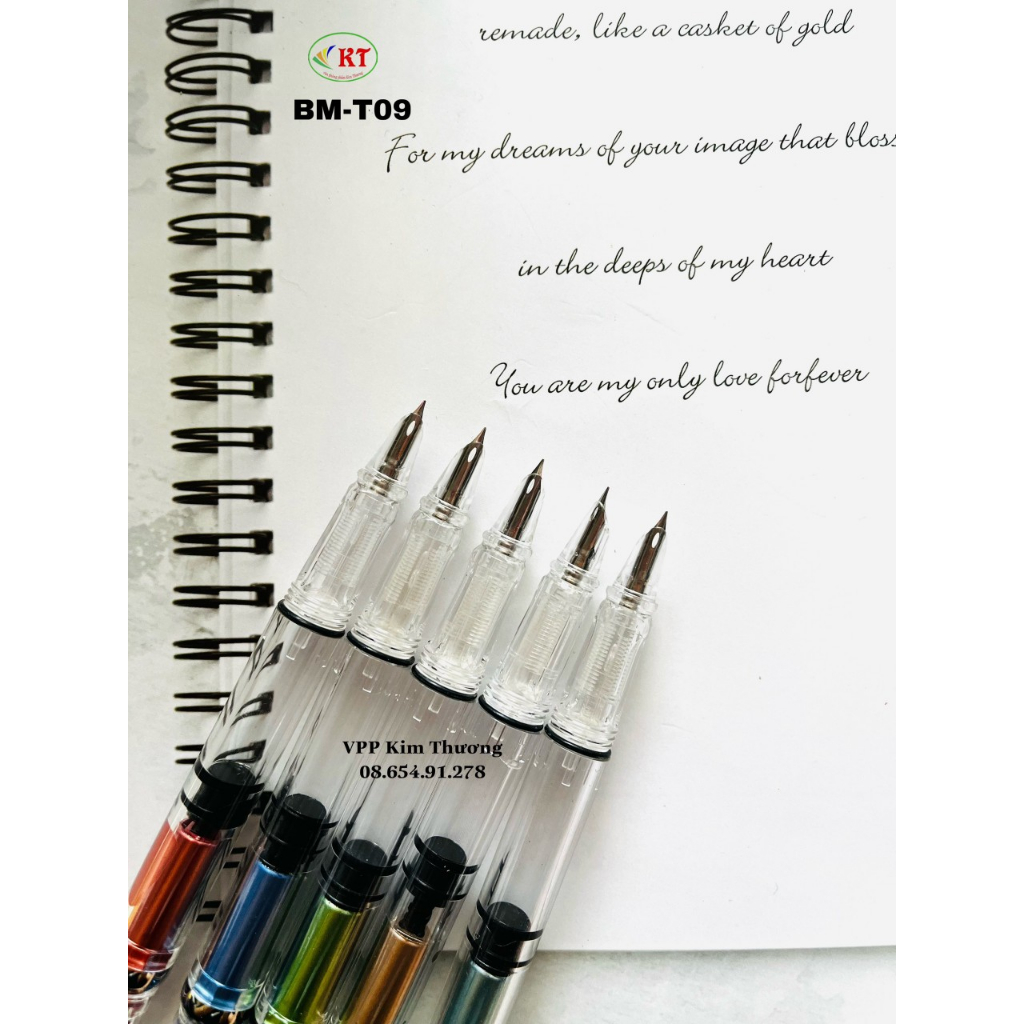 remade, like a casket of gold
KT
BM-T09
For my dreams of your image that bloss
in the deeps of my heart
You are my only love forfever
VPP Kim Thương
08.654.91.278